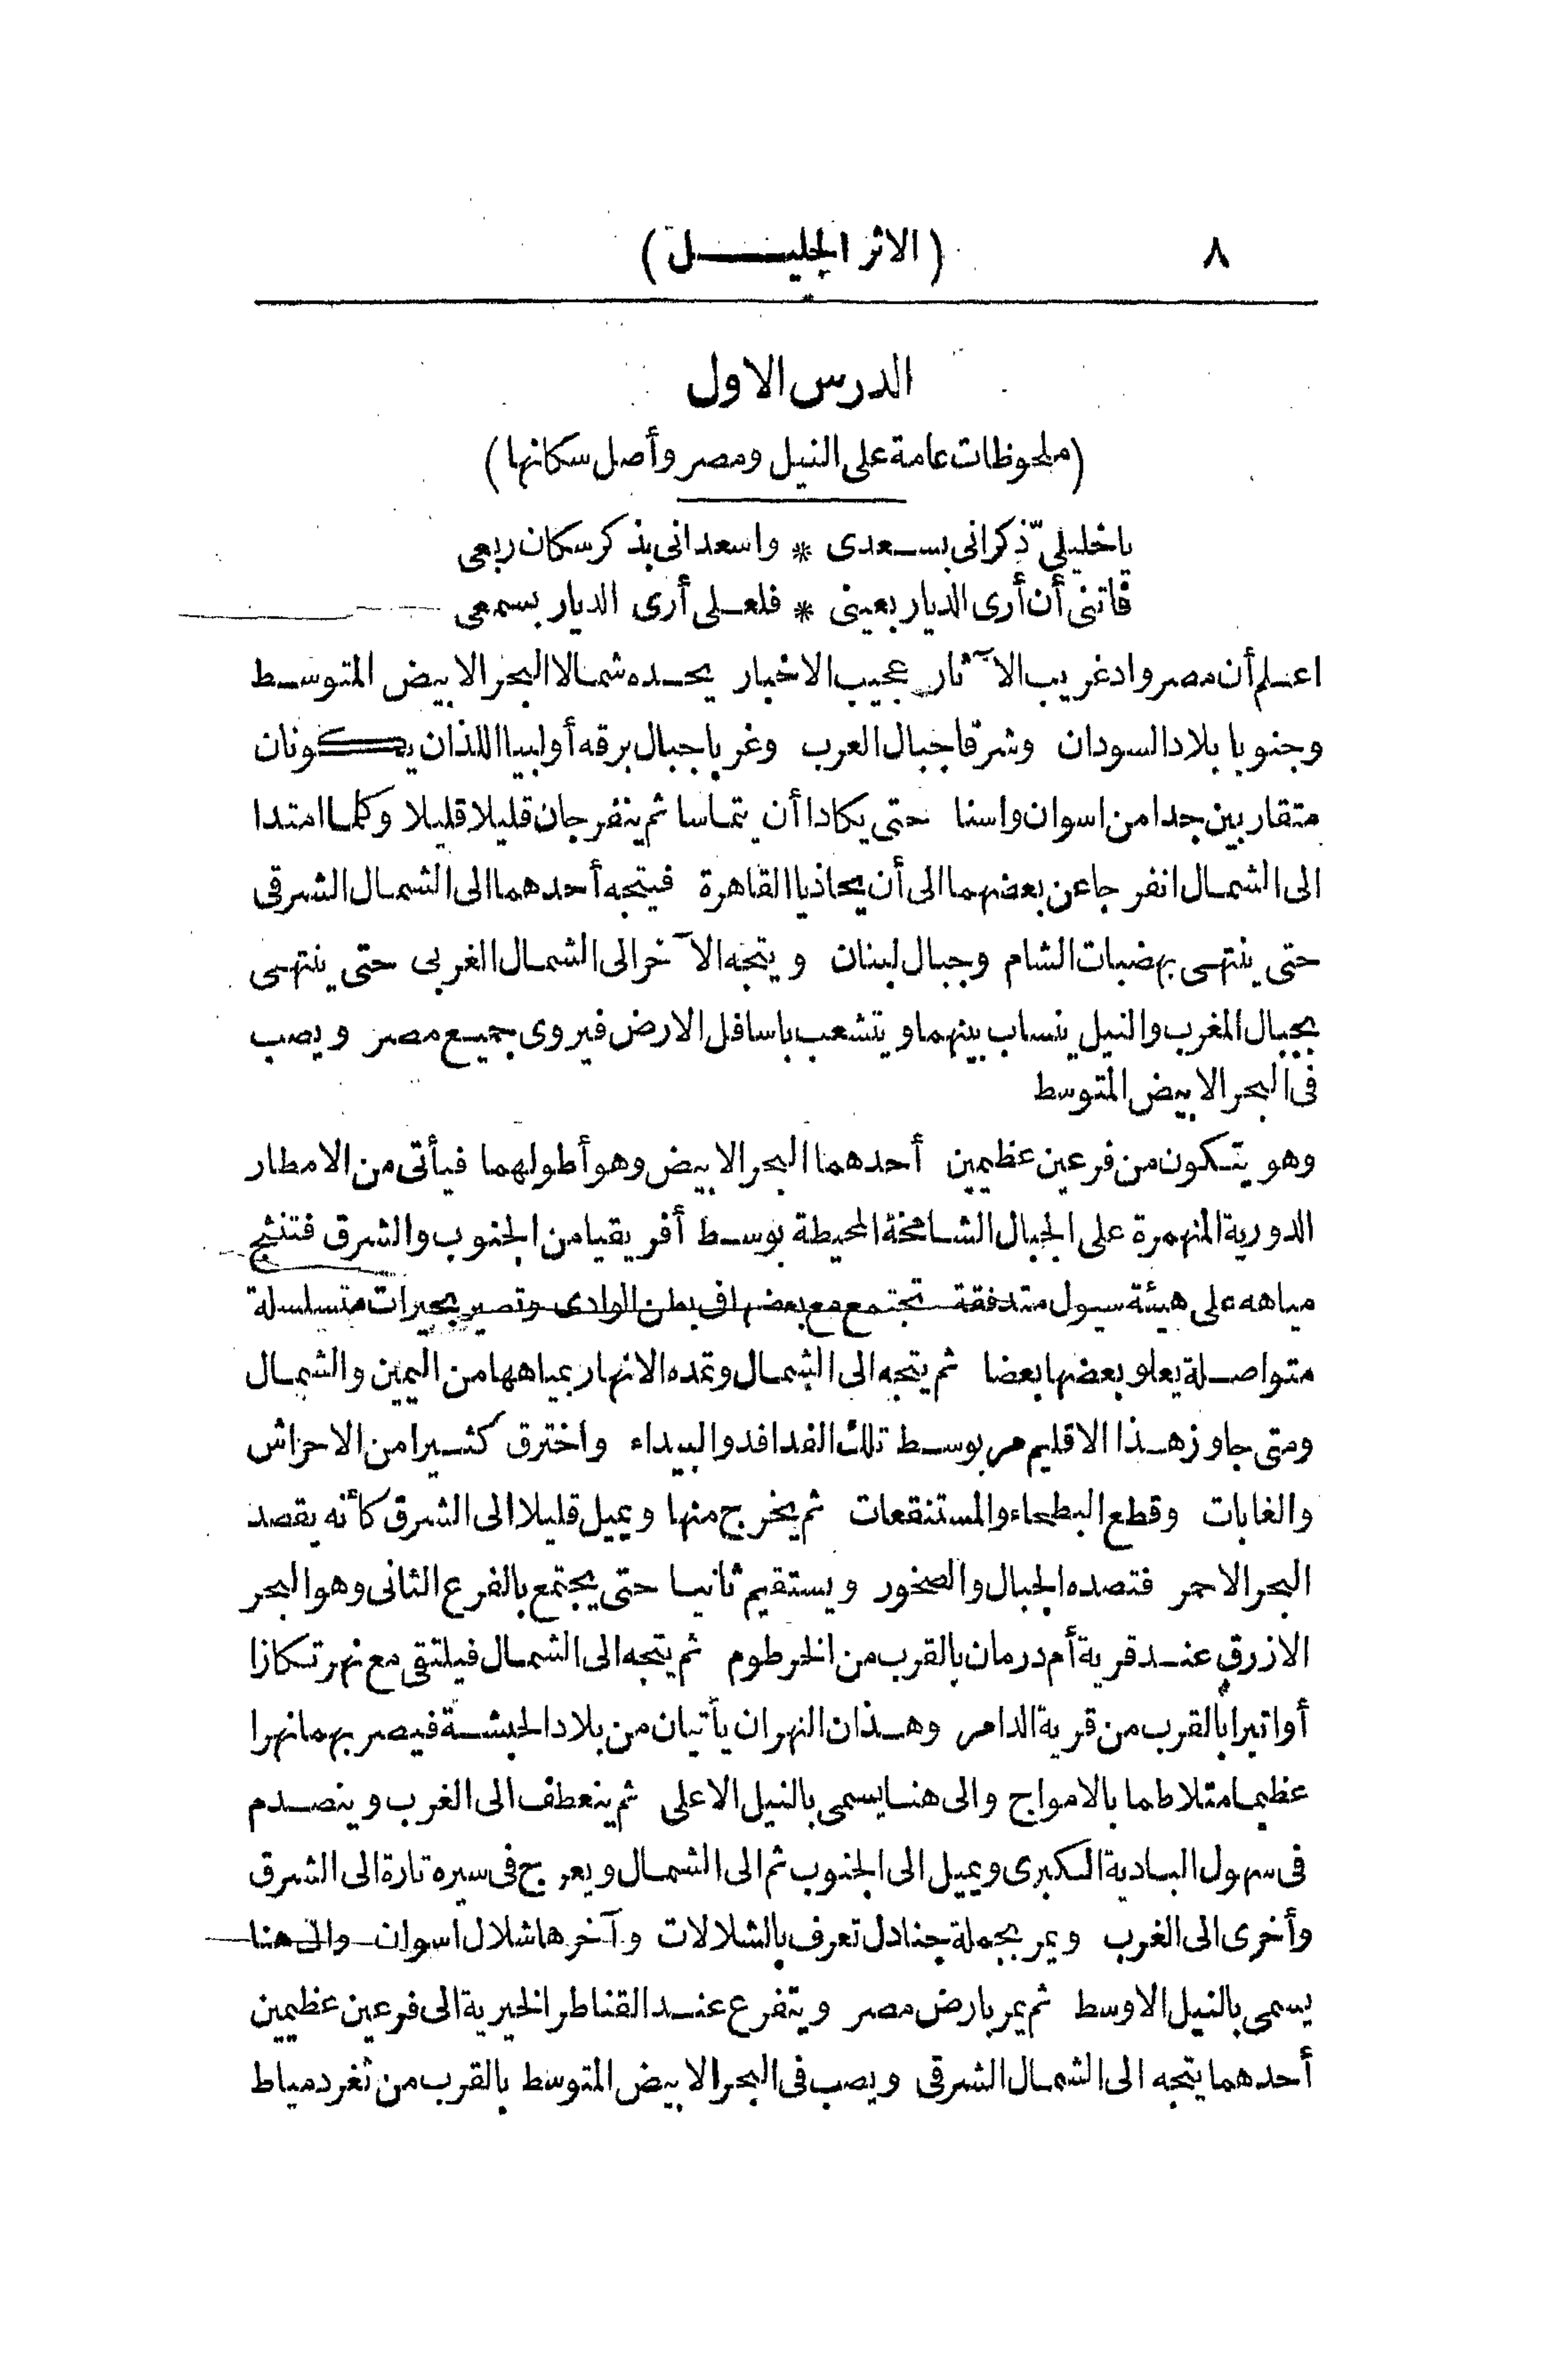 ٨ (الاثر الجليل)
الدرس الاول
(ملحوظات عامة على النيل ومصر وأصل سكانها)
ياخليليّ ذكرانى بسعدى * واسعدانى بذكر سكان ربعى
فاتنى أن أرى الديار بعينى * فلعلى أرى الديار بسمعى
اعلم أن مصر واد غريب الآثار عجيب الاخبار يحده شمالا البحر الابيض المتوسط
وجنوبا بلاد السودان وشرقا جبال العرب وغربا جبال برقه أو ليبيا اللذان يكونان
متقاربين جدا من اسوان واسنا حتى يكادا أن يتماسا ثم ينفرجان قليلا قليلا وكلما امتدا
الى الشمال انفرجا عن بعضهما الى أن يحاذيا القاهرة فيتجه أحدهما الى الشمال الشرقى
حتى ينتهى بهضبات الشام وجبال لبنان ويتجه الآخر الى الشمال الغربى حتى ينتهى
بجبال المغرب والنيل ينساب بينهما ويتشعب باسافل الارض فيروى جميع مصر ويصب
فى البحر الابيض المتوسط
وهو يتكون من فرعين عظيمين أحدهما البحر الابيض وهو أطولهما فيأتى من الامطار
الدورية المنهمرة على الجبال الشامخة المحيطة بوسط أفريقيا من الجنوب والشرق فتنثج
مياهه على هيئة سيول متدفقة تجتمع مع بعضها فى بطن الوادى وتصير بحيرات متسلسلة
متواصلة يعلو بعضها بعضا ثم يتجه الى الشمال وتمده الانهار بمياهها من اليمين والشمال
ومتى جاوز هذا الاقليم مر بوسط تلك الفدافد والبيداء واخترق كثيرا من الاحراش
والغابات وقطع البطحاء والمستنقعات ثم يخرج منها ويميل قليلا الى الشرق كأنه يقصد
البحر الاحمر فتصده الجبال والصخور ويستقيم ثانيا حتى يجتمع بالفرع الثانى وهو البحر
الازرق عند قرية أم درمان بالقرب من الخرطوم ثم يتجه الى الشمال فيلتقى مع نهر تكازا
أو اتبرا بالقرب من قرية الدامر وهذان النهران يأتيان من بلاد الحبشة فيصر بهما نهرا
عظيما متلاطما بالامواج والى هنا يسمى بالنيل الاعلى ثم ينعطف الى الغرب وينصدم
فى سهول البادية الكبرى ويميل الى الجنوب ثم الى الشمال ويعرج فى سيره تارة الى الشرق
وأخرى الى الغرب ويمر بجملة جنادل تعرف بالشلالات وآخرها شلال اسوان والى هنا
يسمى بالنيل الاوسط ثم يمر بارض مصر ويتفرع عند القناطر الخيرية الى فرعين عظيمين
أحدهما يتجه الى الشمال الشرقى ويصب فى البحر الابيض المتوسط بالقرب من ثغر دمياط